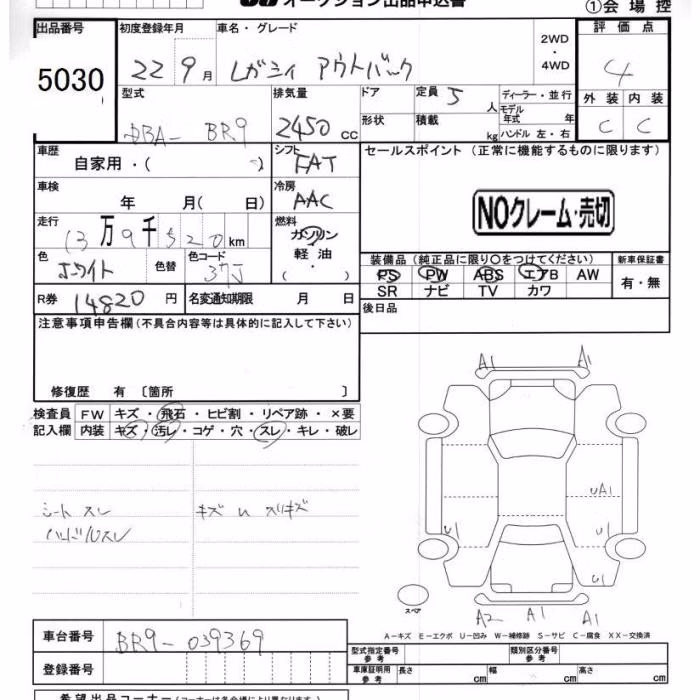 オークション出品申込書
①会場控
出品番号 初度登録年月 車名・グレード 2WD・4WD 評価点
5030 22 9月 レガシィ アウトバック 4
型式 排気量 ドア 定員 5人 ディーラー・並行 外装 内装
DBA- BR9 2450cc 形状 積載 kg モデル年式 年式 ハンドル 左・右 C C
車歴 自家用・( ) シフト FAT セールスポイント (正常に機能するものに限ります)
車検 年 月( 日) 冷房 AAC
NOクレーム・売切
走行 13万9千520km 燃料 ガソリン 軽油・
色 ホワイト 色替 色コード 37J
装備品 (純正品に限り○をつけてください) 新車保証書
PS PW ABS エアB AW 有・無
SR ナビ TV カワ
R券 14820円 名変通知期限 月 日
後日品
注意事項申告欄 (不具合内容等は具体的に記入して下さい)
修復歴 有 〔箇所 〕
検査員 FW キズ・飛石・ヒビ割・リペア跡・×要
記入欄 内装 キズ・汚レ・コゲ・穴・スレ・キレ・破レ
シート スレ キズ U スリキズ
ハンドルスレ
A1 A1
UA1
U1 U1
U1
スペア
A2 A1 A1
A-キズ E-エクボ U-凹み W-補修跡 S-サビ C-腐食 XX-交換済
車台番号 BR9-039369
型式指定番号 参考 類別区分番号 参考
登録番号
車庫証明用 参考 長さ cm 幅 cm 高さ cm
希望出品コーナー (コーナーは各会場により異なります)